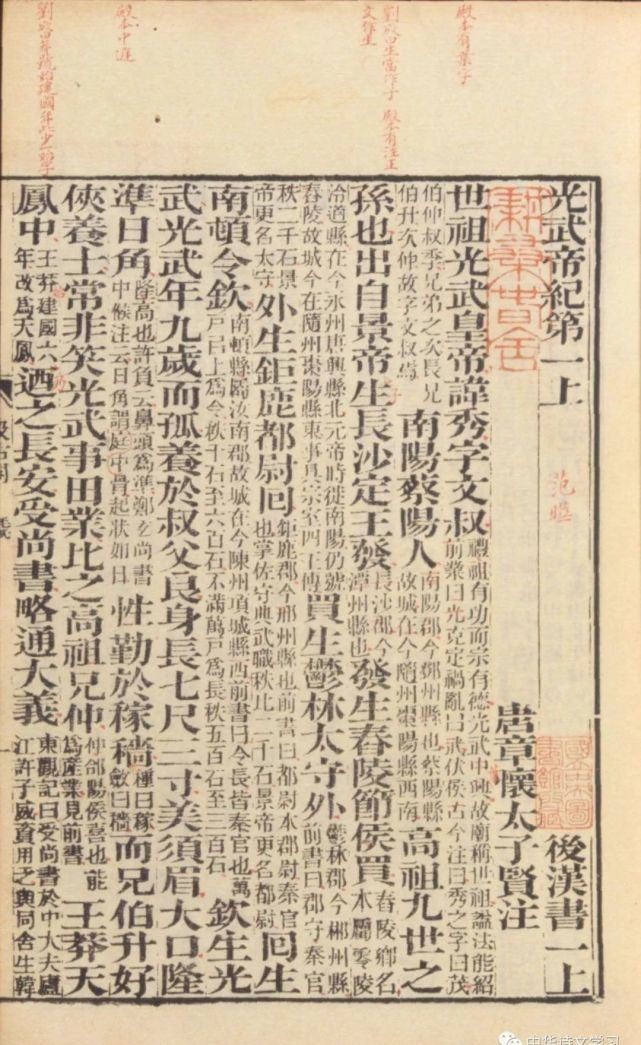 殿本有業字
光武帝紀第一上 後漢書一上
范曄 唐章懷太子賢注
世祖光武皇帝諱秀字文叔 禮祖有功而宗有德光武中興故廟稱世祖諡法能紹前業曰光克定禍亂曰武伏侯古今注曰秀之字曰茂
伯仲叔季兄弟之次長兄伯升次仲故字文叔焉 南陽蔡陽人 南陽郡今鄧州縣也蔡陽縣故城在今隨州棗陽縣西南 高祖九世之
孫也出自景帝生長沙定王發 長沙郡今潭州縣也 發生舂陵節侯買 舂陵鄉名本屬零陵
泠道縣在今永州唐興縣北元帝時徙南陽仍號舂陵故城今在隨州棗陽縣東事具宗室四王傳 買生鬱林太守外 鬱林郡今郴州縣前書曰郡守秦官
秩二千石景帝更名太守 外生鉅鹿都尉回 鉅鹿郡今邢州縣也前書曰都尉本郡尉秦官也掌佐守典武職秩比二千石景帝更名都尉 回生
南頓令欽 南頓縣屬汝南郡故城在今陳州項城縣西前書曰令長皆秦官也萬戶已上為令秩千石至六百石不滿萬戶為長秩五百石至三百石 欽生光
武光武年九歲而孤養於叔父良身長七尺三寸美須眉大口隆
準日角 隆高也許負云鼻頭為準鄭玄尚書中候注云日角謂庭中骨起狀如日 性勤於稼穡 種曰稼斂曰穡 而兄伯升好
俠養士常非笑光武事田業比之高祖兄仲 仲郃陽侯喜也能為產業見前書 王莽天
鳳中 王莽建國六年改為天鳳 迺之長安受尚書略通大義 東觀記曰受尚書於中大夫廬江許子威資用乏與同舍生韓
中华诗文学习